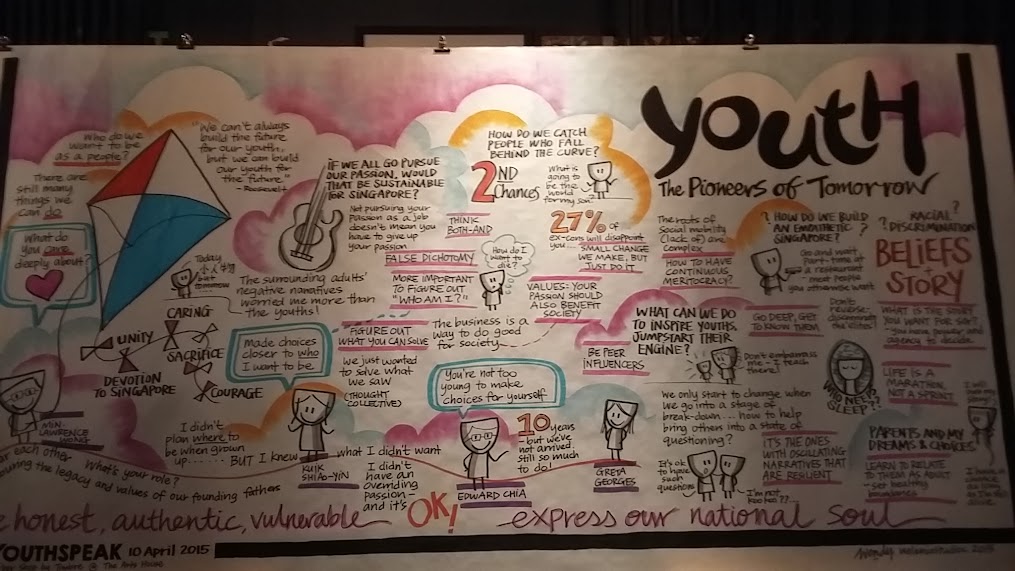 YOUTH
The Pioneers of Tomorrow
Who do we
want to be
as a people?
There are
still many
things we
can do
What do
you care
deeply about?
"We can't always
build the future
for our youth,
but we can build
our youth for
the future."
- Roosevelt
Today
小人物
but tomorrow
CARING
UNITY
SACRIFICE
DEVOTION
TO SINGAPORE
COURAGE
IF WE ALL GO PURSUE
OUR PASSION, WOULD
THAT BE SUSTAINABLE
FOR SINGAPORE?
Not pursuing your
passion as a job
doesn't mean you
have to give up
your passion
FALSE DICHOTOMY
THINK
BOTH-AND
The surrounding adults'
negative narratives
worried me more than
the youths!
MORE IMPORTANT
TO FIGURE OUT
"WHO AM I?"
HOW DO WE CATCH
PEOPLE WHO FALL
BEHIND THE CURVE?
2ND
Chances
What is
going to
be the
world
for my son?
27% of
ex-cons will disappoint
you...
SMALL CHANGE
WE MAKE, BUT
JUST DO IT
How do I
want to
die?
VALUES: YOUR
PASSION SHOULD
ALSO BENEFIT
SOCIETY
The business is a
way to do good
for society
FIGURE OUT
WHAT YOU CAN SOLVE
We just wanted
to solve what
we saw
(THOUGHT
COLLECTIVE)
Made choices
closer to who
I want to be
You're not too
young to make
choices for yourself
BE PEER
INFLUENCERS
The roots of
Social mobility
(lack of) are
complex
HOW TO HAVE
CONTINUOUS
MERITOCRACY?
? HOW DO WE BUILD
AN EMPATHETIC ?
SINGAPORE?
Go and work
part-time at
a restaurant
- meet people
you otherwise wont
? RACIAL ?
DISCRIMINATION
BELIEFS
STORY
WHAT IS THE STORY
YOU WANT FOR SG?
You have power and
agency to decide
GO DEEP, GET
TO KNOW THEM
WHAT CAN WE DO
TO INSPIRE YOUTHS,
JUMPSTART THEIR
ENGINE?
Don't embarrass
& teach
them!
WHO NEEDS
SLEEP??
LIFE IS A
MARATHON,
NOT A
SPRINT
We only start to change when
we go into a stage of
break-down... how to help
bring others into a state of
questioning?
It's ok to
have
such
questions
I'm not
koo koo??
IT'S THE ONES
WITH OSCILLATING
NARRATIVES THAT
ARE RESILIENT
PARENTS AND MY
DREAMS & CHOICES?
LEARN TO RELATE
TO THEM AS ADULT
- set healthy
boundaries
MIN-
LAWRENCE
WONG
What's your role?
I didn't
plan where to
be when grown
up...... BUT I knew
what I didn't want
KUIK
SHIAO-YIN
I didn't
have an
overriding
passion -
and it's
OK!
EDWARD CHIA
10 years
- but we've
not arrived.
Still so much
to do!
GRETA
GEORGES
each other
the legacy and values of our founding fathers
honest, authentic, vulnerable
express our national soul
YOUTHSPEAK 10 April 2015
@ The Arts House